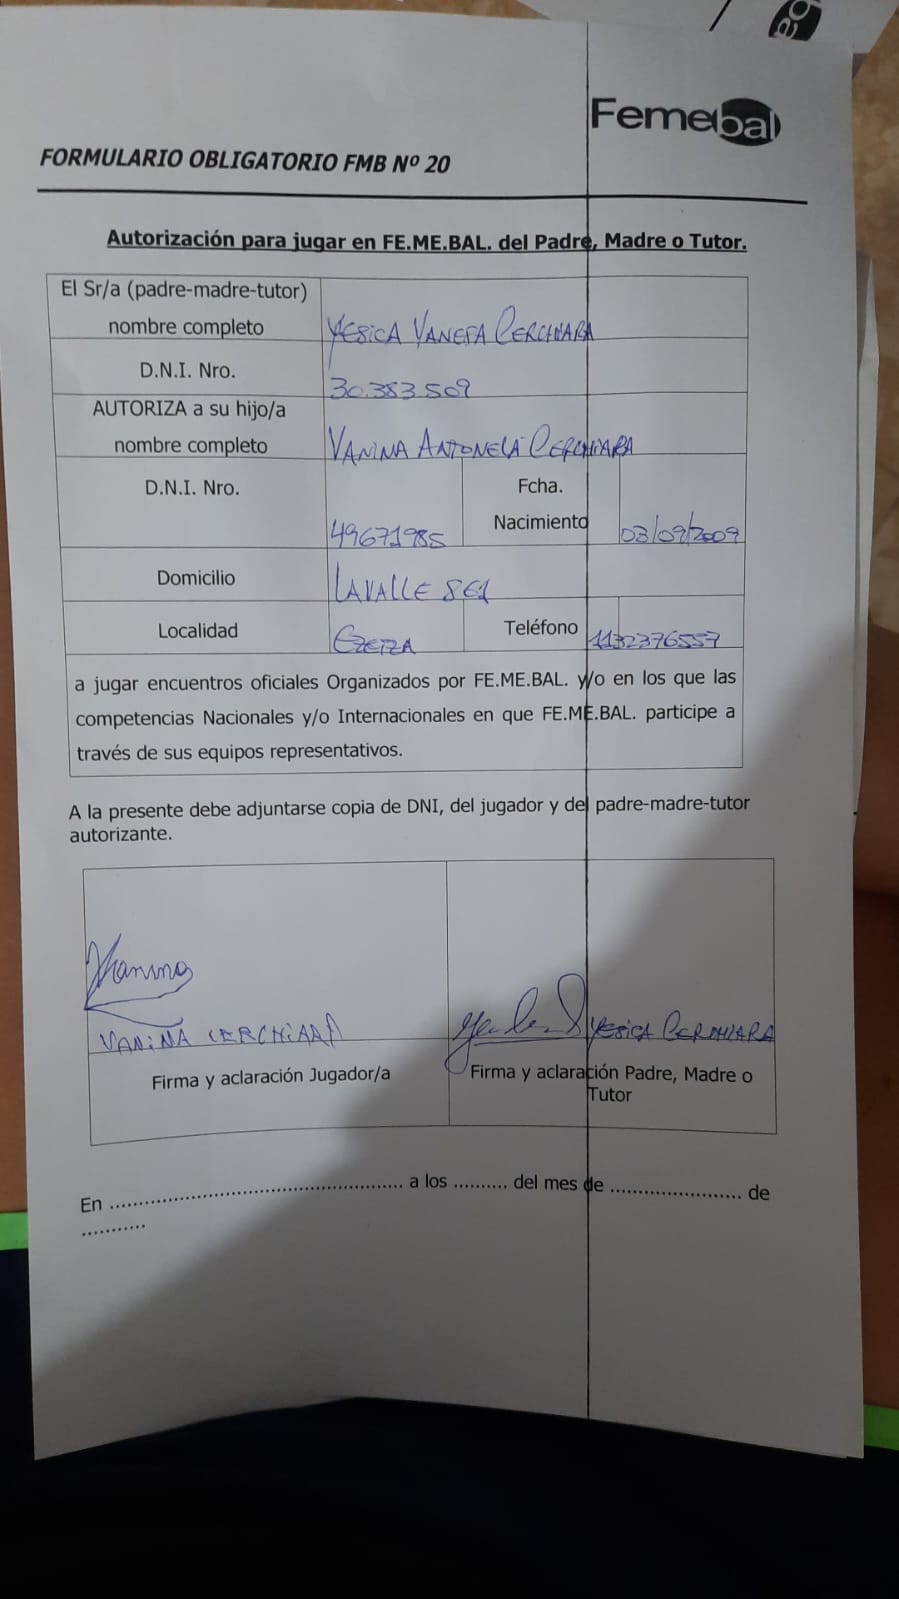 Femebal
FORMULARIO OBLIGATORIO FMB Nº 20
Autorización para jugar en FE.ME.BAL. del Padre, Madre o Tutor.
El Sr/a (padre-madre-tutor)
nombre completo
YESICA VANESA CERCHIARA
D.N.I. Nro.
30.383.509
AUTORIZA a su hijo/a
nombre completo
VANINA ANTONELA CERCHIARA
D.N.I. Nro.
49671985
Fcha.
Nacimiento
03/09/2009
Domicilio
LAVALLE 861
Localidad
EZEIZA
Teléfono
1132376557
a jugar encuentros oficiales Organizados por FE.ME.BAL. y/o en los que las
competencias Nacionales y/o Internacionales en que FE.ME.BAL. participe a
través de sus equipos representativos.
A la presente debe adjuntarse copia de DNI, del jugador y del padre-madre-tutor
autorizante.
Vanina
VANiNA CERCHiARA
YESICA CERCHIARA
Firma y aclaración Jugador/a
Firma y aclaración Padre, Madre o
Tutor
En ............................................. a los .......... del mes de ....................... de
...........